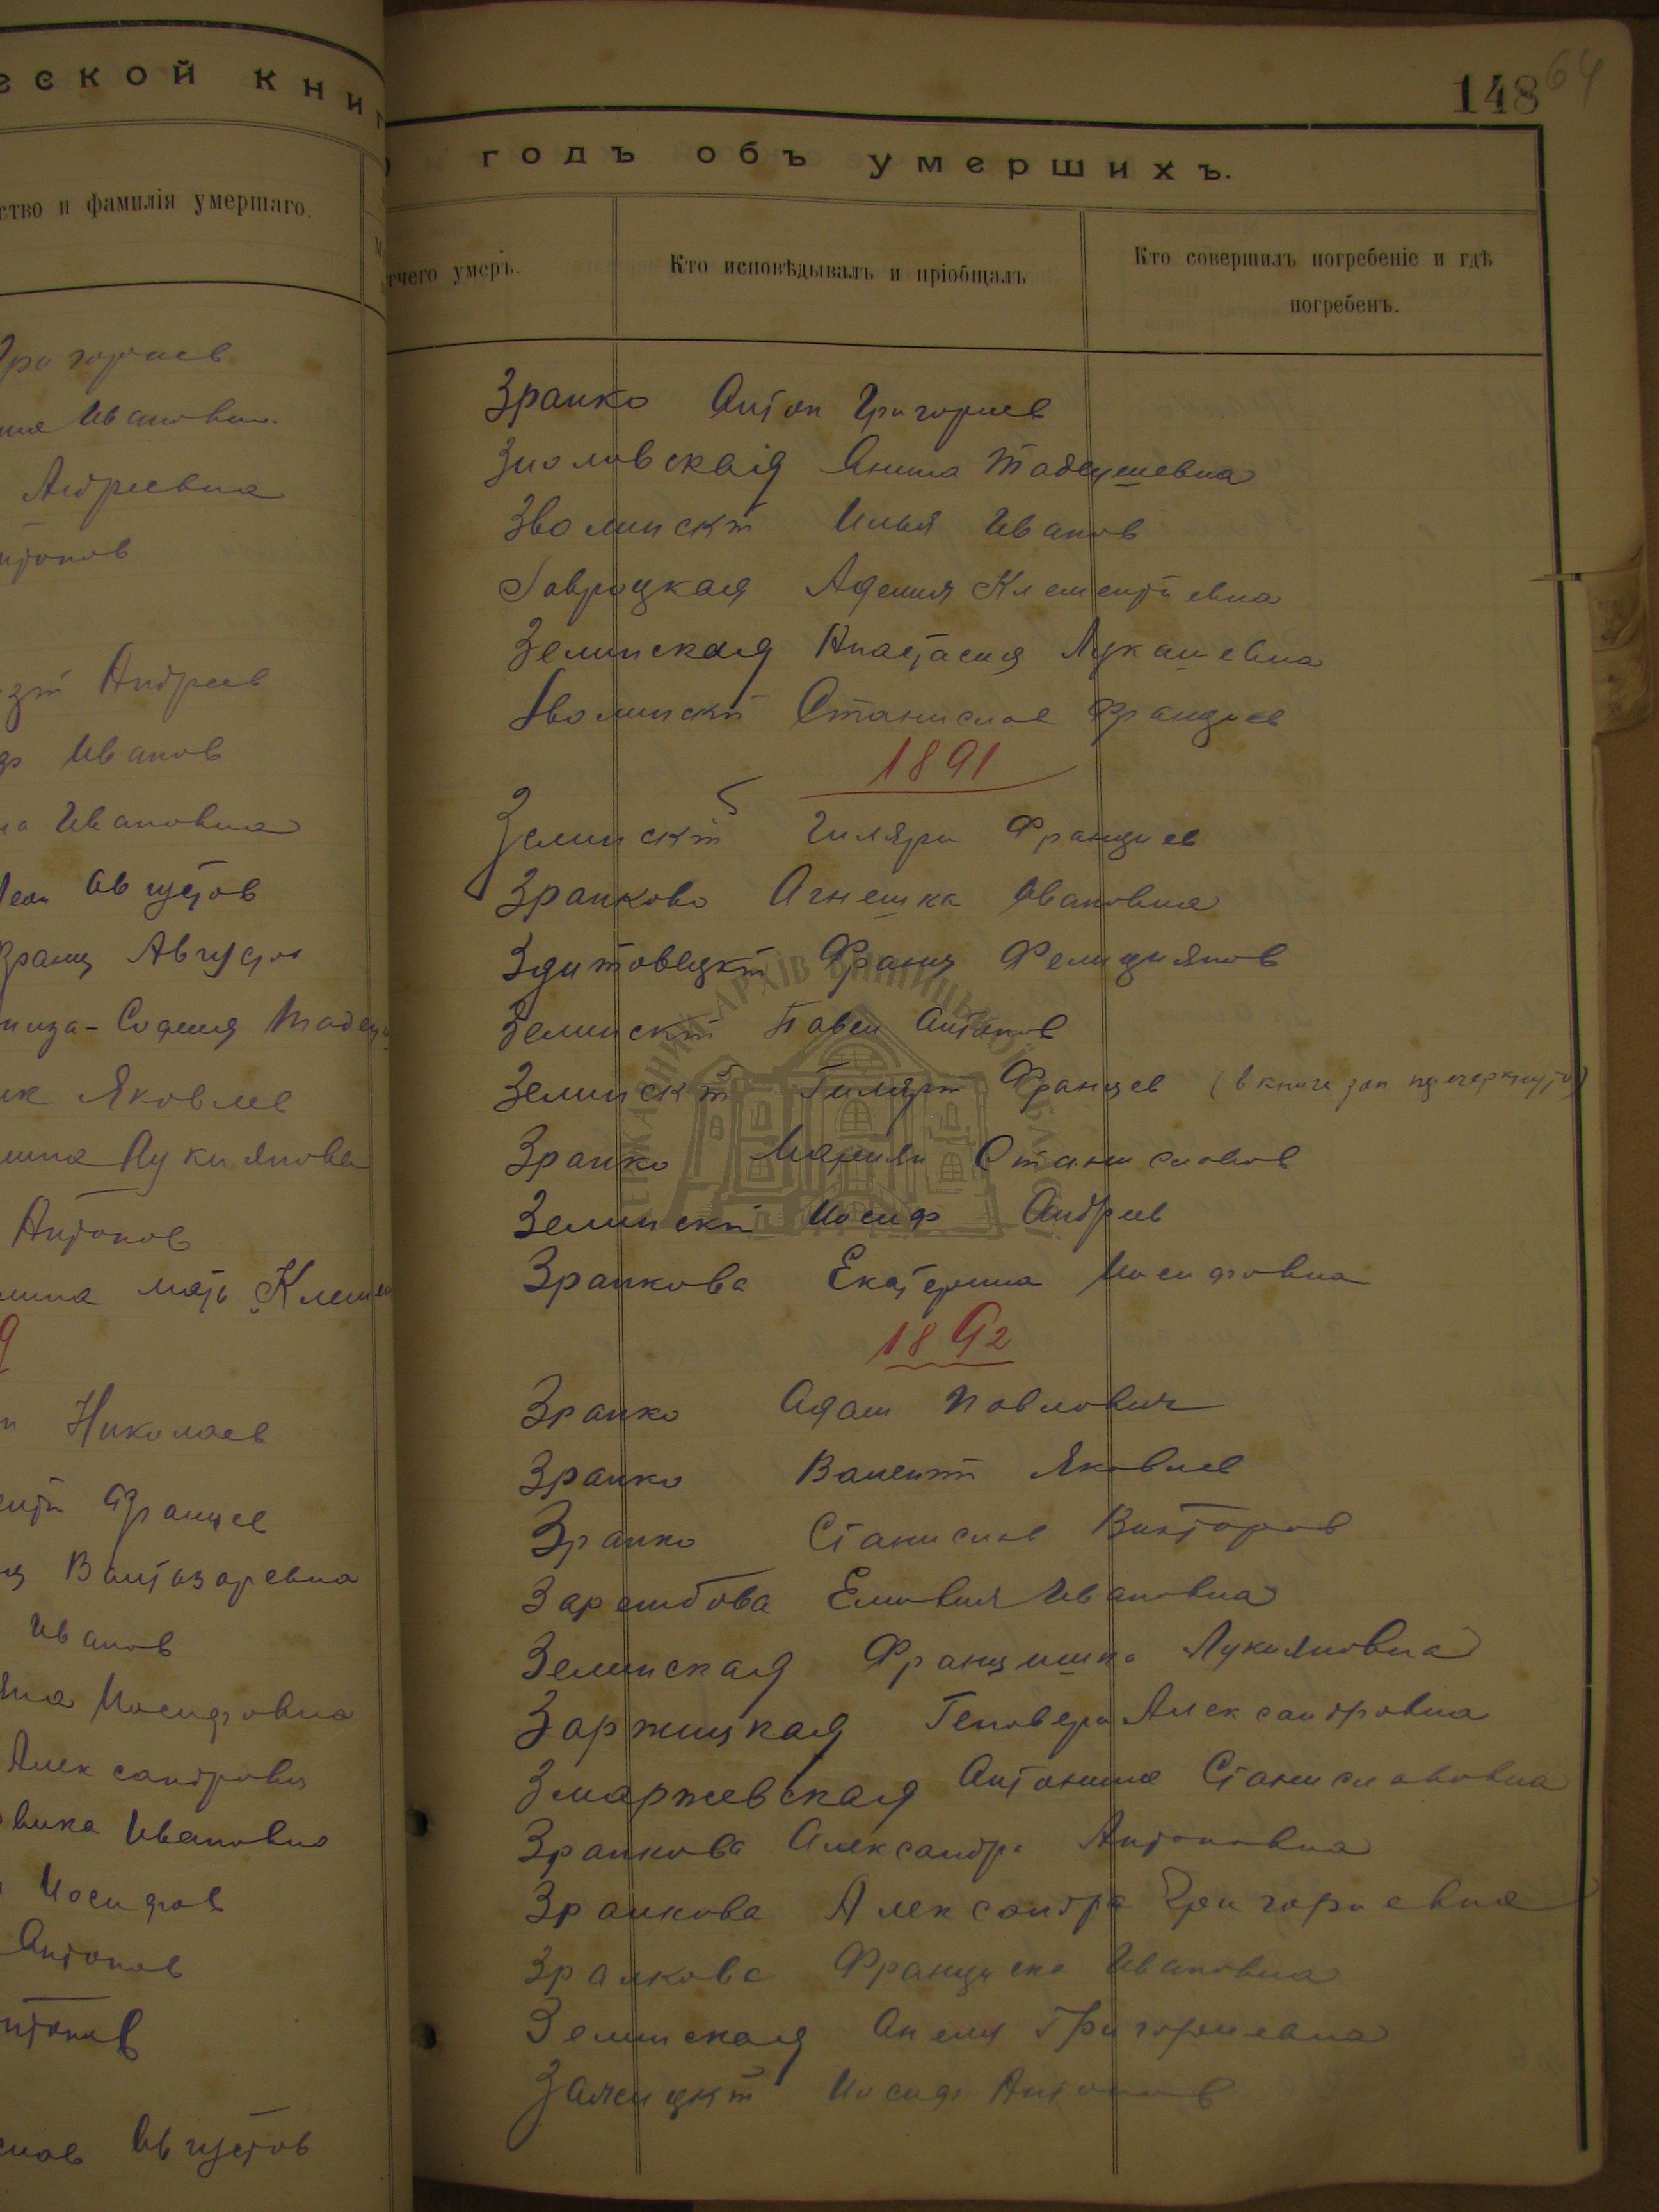 еской книг
ство и фамилія умершаго.
Григориев
Ивановна
Андреевна
Антонов
Андреев
Иванов
Ивановна
Леон Августов
Франц Августов
София Тадеу
Яковлев
Лукиянова
Антонов
мать Клемен
9
Николаев
Францев
Валтазаревна
Иванов
Иосифовна
Александрович
Ивановна
Иосифов
Антонов
Антонов
Августов
148 64
годъ объ умершихъ.
отчего умеръ.
Кто исповѣдывалъ и пріобщалъ
Кто совершилъ погребеніе и гдѣ
погребенъ.
Зранко Антон Григориев
Анна Тадеушевна
Зволинскій Илья Иванов
Гавроцкая Аделия Клементиевна
Зелинская Анастасия Лукашевна
Зволинскій Станислав Францев
1891
Зелинскій Гиляри Францев
Зранкова Агнешка Ивановна
Здитовецкій Франц Фелициянов
Зелинскій Павел Антонов
Зелинскій Гилярий Францев (в книге зап перечеркнуто)
Зранко Мариян Станиславов
Зелинскій Иосиф Андреев
Зранкова Екатерина Иосифовна
1892
Зранко Адам Павлович
Зранко Валентий Яковлев
Зранко Станислав Викторов
Зарембова Ивановна
Зелинская Францишка Лукияновна
Заржицкая Геновефа Александровна
Змаржевская Антонина Станиславовна
Зранкова Александра Антоновна
Зранкова Александра Григориевна
Зранкова Франциска Ивановна
Зелинская Анеля Григориевна
Иосиф Антонов